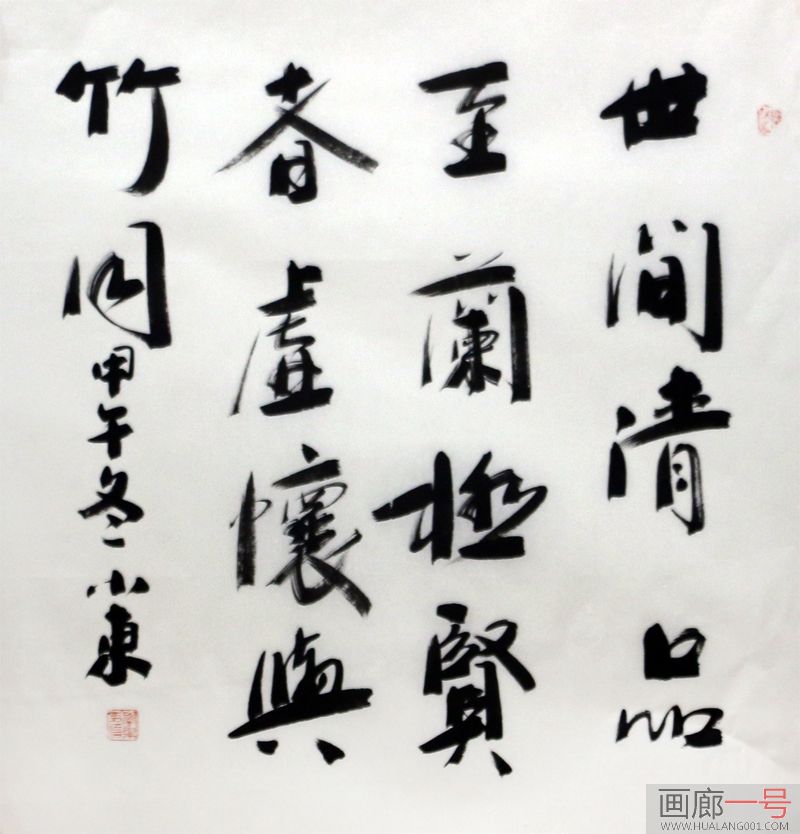 世間清品
至蘭極賢
者虛懷與
竹同
甲午冬小東
画廊一号
WWW.HUALANG001.COM